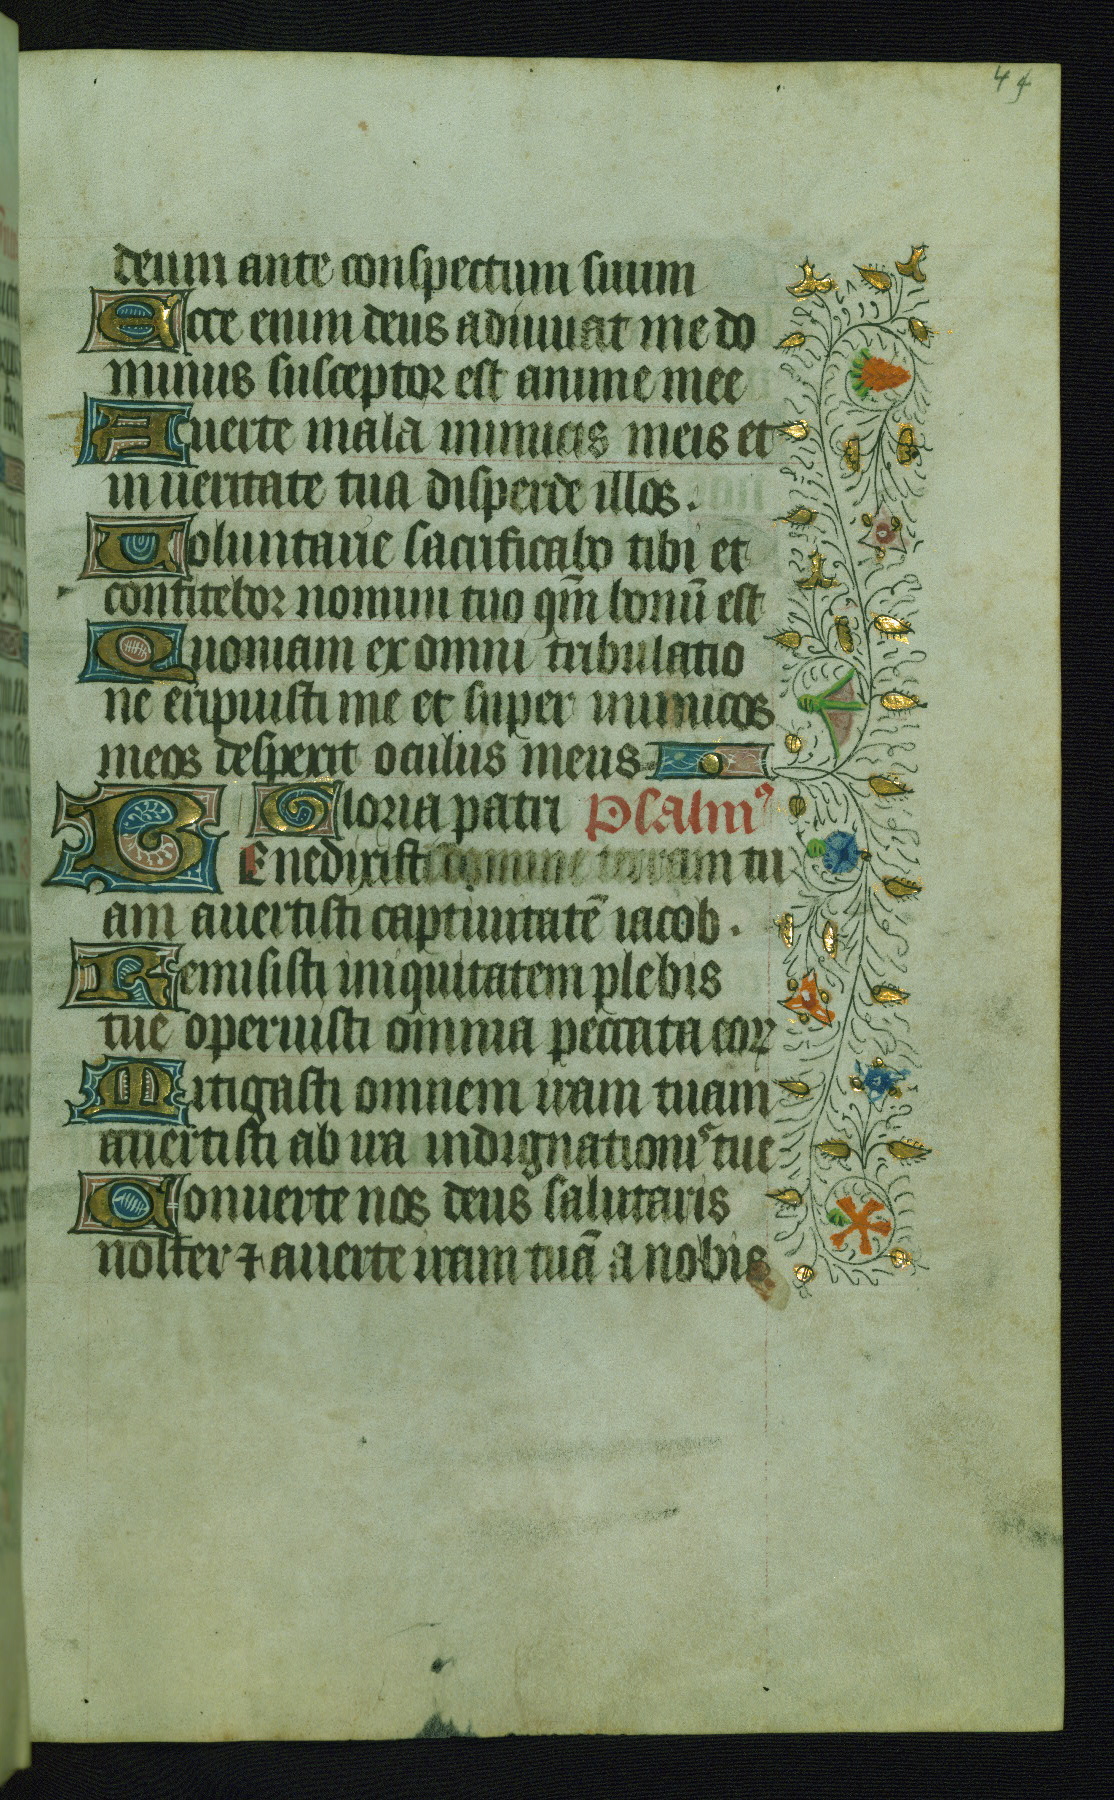 49
deum ante conspectum suum
Ecce enim deus adiuuat me do
minus susceptor est anime mee
Auerte mala inimicis meis et
in ueritate tua disperde illos.
Uoluntarie sacrificabo tibi et
confitebor nomini tuo qm̄ bonū est
Quoniam ex omni tribulatio
ne eripuisti me et super inimicos
meos despexit oculus meus
Gloria patri Psalmꝰ
Benedixisti domine terram tu
am auertisti captiuitatē iacob.
Remisisti iniquitatem plebis
tue operuisti omnia peccata eoꝝ
Mitigasti omnem iram tuam
auertisti ab ira indignationis tue
Conuerte nos deus salutaris
noster ⁊ auerte iram tuā a nobis